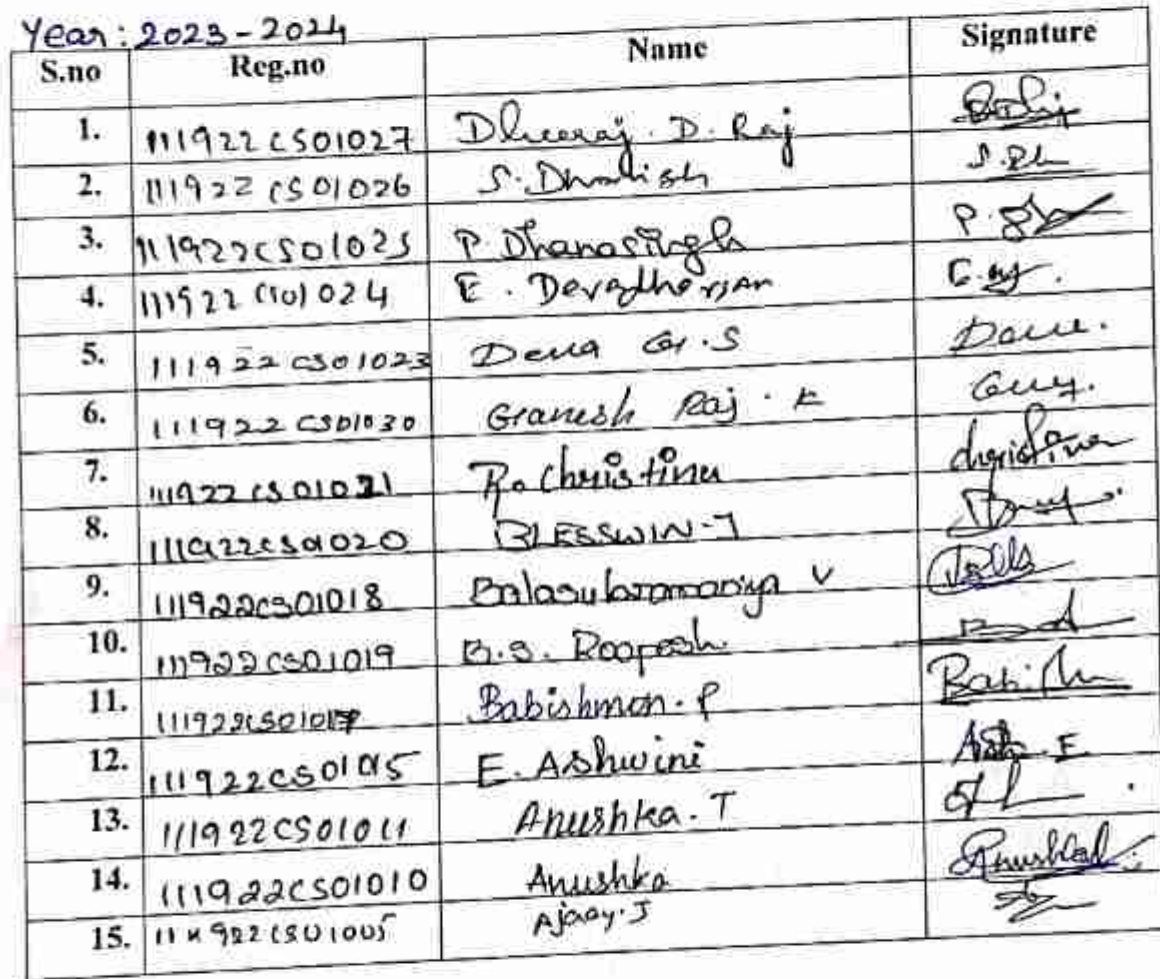 Year: 2023-2024
S.no Reg.no Name Signature
1. 111922CS01027 Dheeraj. D. Raj
2. 111922CS01026 S. Dhalish S.
3. 111922CS01025 P. Dhanasingh P.
4. 111922CS01024 E. Devadharsan
5. 111922CS01023 Deva G.S
6. 111922CS01030 Ganesh Raj. K
7. 111922CS01021 R. Christina christina
8. 111922CS01020 BLESSWIN-J
9. 111922CS01018 Balasubramaniya V
10. 111922CS01019 B.S. Roopesh.
11. 111922CS01017 Babishmon. P
12. 111922CS01015 E. Ashwini
13. 111922CS01011 Anushka. T
14. 111922CS01010 Anushka
15. 922CS01005 Ajaay. J